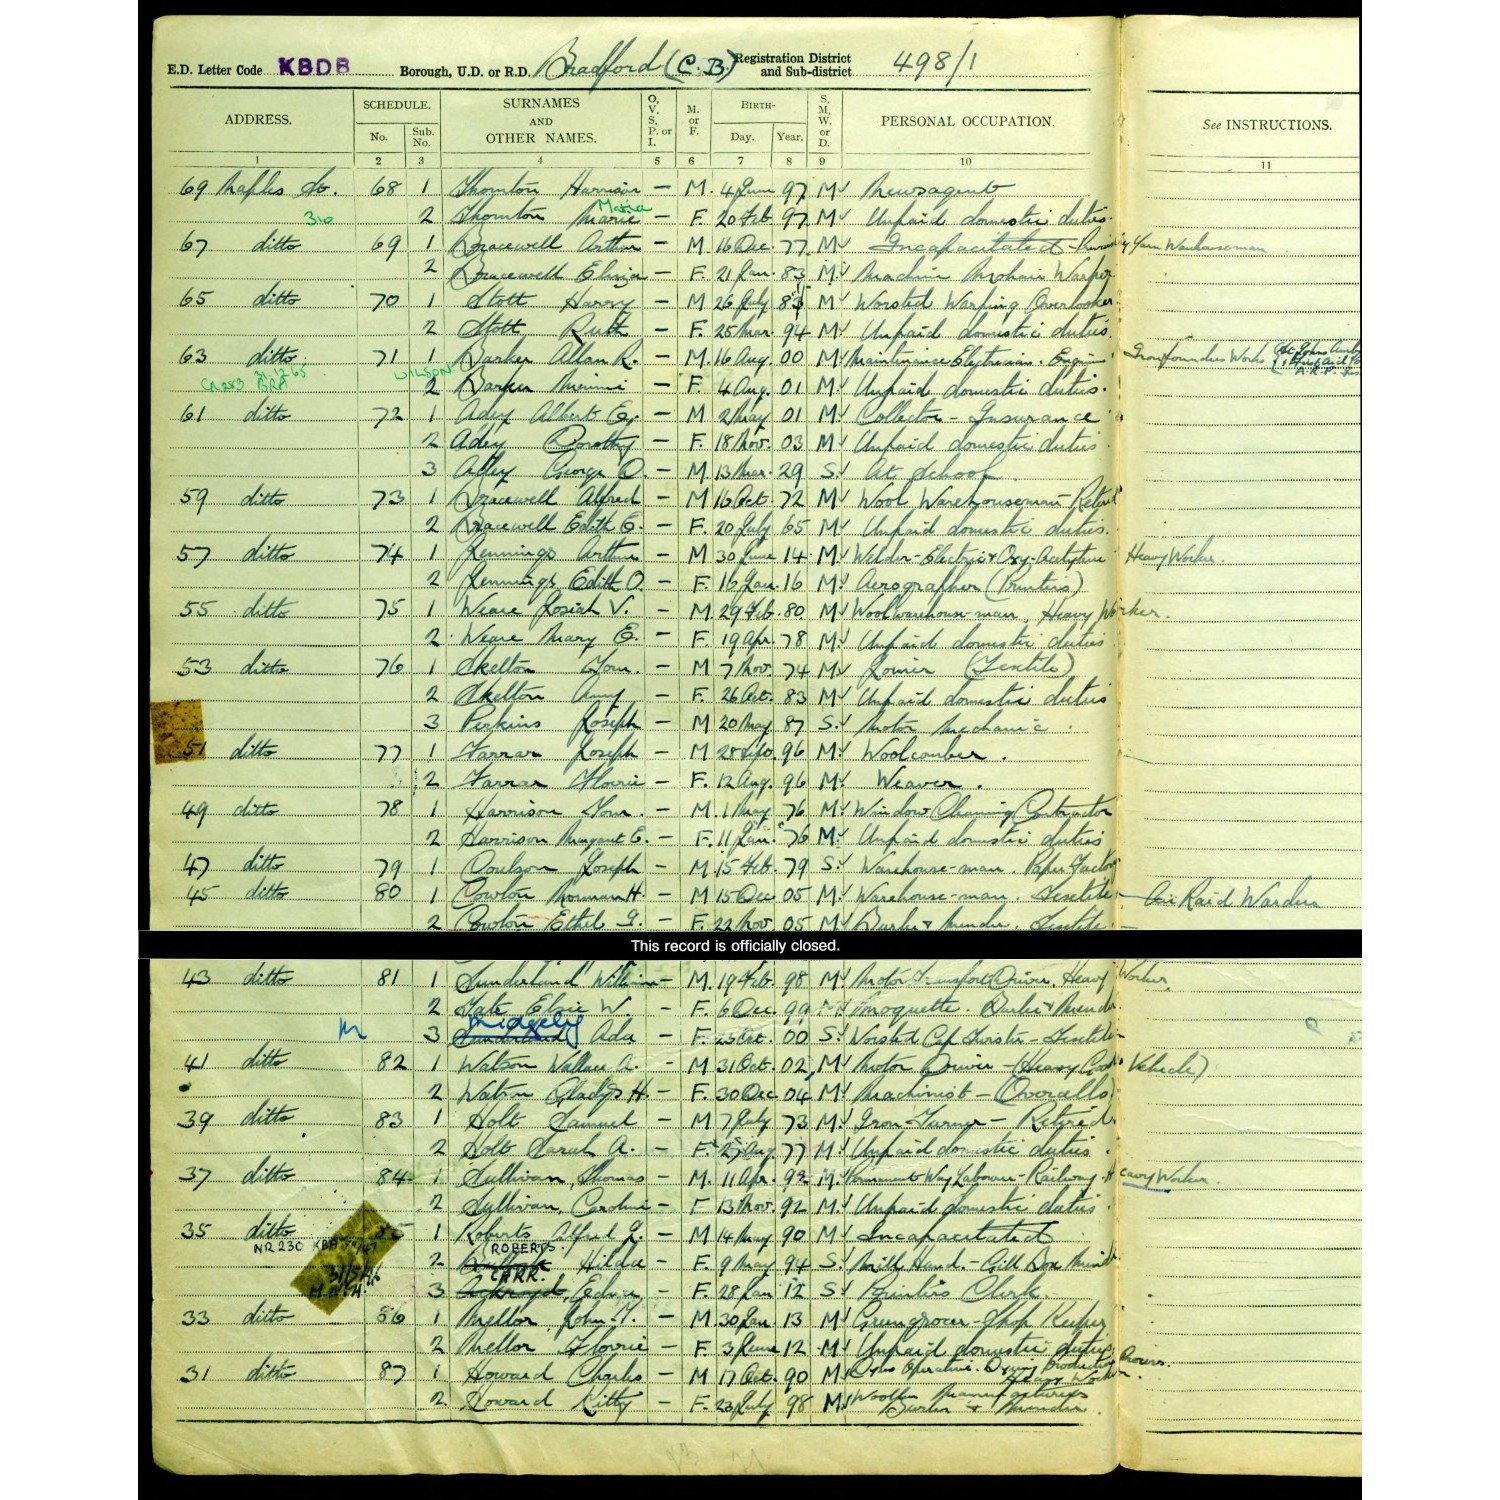 E.D. Letter Code KBDB Borough, U.D. or R.D. Bradford (C.B) Registration District and Sub-district 498/1
ADDRESS. SCHEDULE. No. Sub. No. SURNAMES AND OTHER NAMES. O, V, S, P. or I. M. or F. BIRTH- Day. Year. S, M, W. or D. PERSONAL OCCUPATION. See INSTRUCTIONS.
1 2 3 4 5 6 7 8 9 10 11
69 Naples St. 68 1 Thornton Harrison — M. 4 June 97 M Newsagent
Maria
310 2 Thornton Marie — F. 20 Feb 97 M Unpaid domestic duties.
67 ditto 69 1 Bracewell Arthur — M 16 Dec. 77 M Incapacitated - Yarn Warehouseman
2 Bracewell Eliza — F. 21 Jan. 83 M Machine Mohair Warper
65 ditto 70 1 Stott Harry — M 26 July 83 M Worsted Warping Overlooker
2 Stott Ruth — F. 25 Mar. 94 M Unpaid domestic duties.
63 ditto 71 1 Barker Allan R. — M. 16 Aug. 00 M Maintenance Electrician. Ironfoundries Works
CR283 31.12.65 BRD WILSON
2 Barker Minnie — F. 4 Aug. 01 M Unpaid domestic duties.
61 ditto 72 1 Adey Albert — M 2 May 01 M Collector - Insurance
2 Adey Dorothy — F. 18 Nov. 03 M Unpaid domestic duties.
3 Adey George O. — M. 13 Mar. 29 S. At school
59 ditto 73 1 Bracewell Alfred — M 16 Oct. 72 M Wool Warehouseman - Retired
2 Bracewell Edith E. — F. 20 July 65 M Unpaid domestic duties.
57 ditto 74 1 Jennings Arthur — M 30 June 14 M Welder - Electric & Oxy-Acetylene Heavy Worker.
2 Jennings Edith O. — F. 16 Jan. 16 M Aerographer (Printers)
55 ditto 75 1 Weare Josiah V. — M. 29 Feb. 80 M Wool warehouse-man. Heavy Worker.
2 Weare Mary E. — F. 19 Apr. 78 M. Unpaid domestic duties
53 ditto 76 1 Skelton Tom. — M 7 Nov. 74 M Joiner (Textile)
2 Skelton Amy — F. 26 Oct. 83 M Unpaid domestic duties
3 Perkins Joseph — M 20 May 87 S. Motor Mechanic.
51 ditto 77 1 Farrar Joseph — M 28 Sep. 96 M. Woolcomber.
2 Farrar Florrie — F. 12 Aug. 96 M. Weaver.
49 ditto 78 1 Harrison Tom. — M. 1 May 76 M. Window Cleaning Contractor
2 Harrison Margaret E. — F. 11 Jan. 76 M. Unpaid domestic duties
47 ditto 79 1 Coulson Joseph — M. 15 Feb. 79 S. Warehouse-man. Paper Factory
45 ditto 80 1 Cowton Norman H. — M 15 Dec 05 M. Warehouse-man. Textile - Air Raid Warden
2 Cowton Ethel G. — F. 22 Nov. 05 M. Burler & Mender. Textile -
This record is officially closed.
43 ditto 81 1 Sunderland William — M. 19 Feb. 98 M. Motor Transport Driver. Heavy Worker.
2 Tate Elsie W. — F. 6 Dec. 99 M Moquette Burler & Mender
Midgely
3 Sunderland Ada — F. 23 Oct. 00 S. Worsted Cap Twister - Textile
41 ditto 82 1 Watson Wallace A. — M 31 Oct. 02 M. Motor Driver - (Heavy Goods Vehicle)
2 Watson Gladys H. — F. 30 Dec 04 M. Machinist - (Overalls)
39 ditto 83 1 Holt Samuel — M 7 July 73 M. Iron Turner - Retired.
2 Holt Sarah A. — F. 25 Aug 77 M. Unpaid domestic duties.
37 ditto 84 1 Sullivan, Thomas — M. 11 Apr. 92 M. Permanent Way Labourer - Railway - Heavy Worker.
2 Sullivan, Caroline — F 13 Nov. 92 M. Unpaid domestic duties.
35 ditto 85 1 Roberts Alfred — M 14 May 90 M Incapacitated
NR230 KBB ROBERTS.
2 Hilda — F. 9 May 94 S. Mill Hand. - Gill Box Minder
31/5/46 CARR.
3 Ackroyd, Edna — F. 28 Jan 12 S Printers Clerk.
33 ditto 86 1 Mellor John T. — M. 30 Jan. 13 M. Greengrocer - Shop Keeper
2 Mellor Florrie — F. 3 June 12 M. Unpaid domestic duties
31 ditto 87 1 Howard Charles — M 17 Oct. 90 M Operative. Heavy Worker.
2 Howard Kitty — F. 23 July 98 M. Woollen Manufacturers Burler & Mender